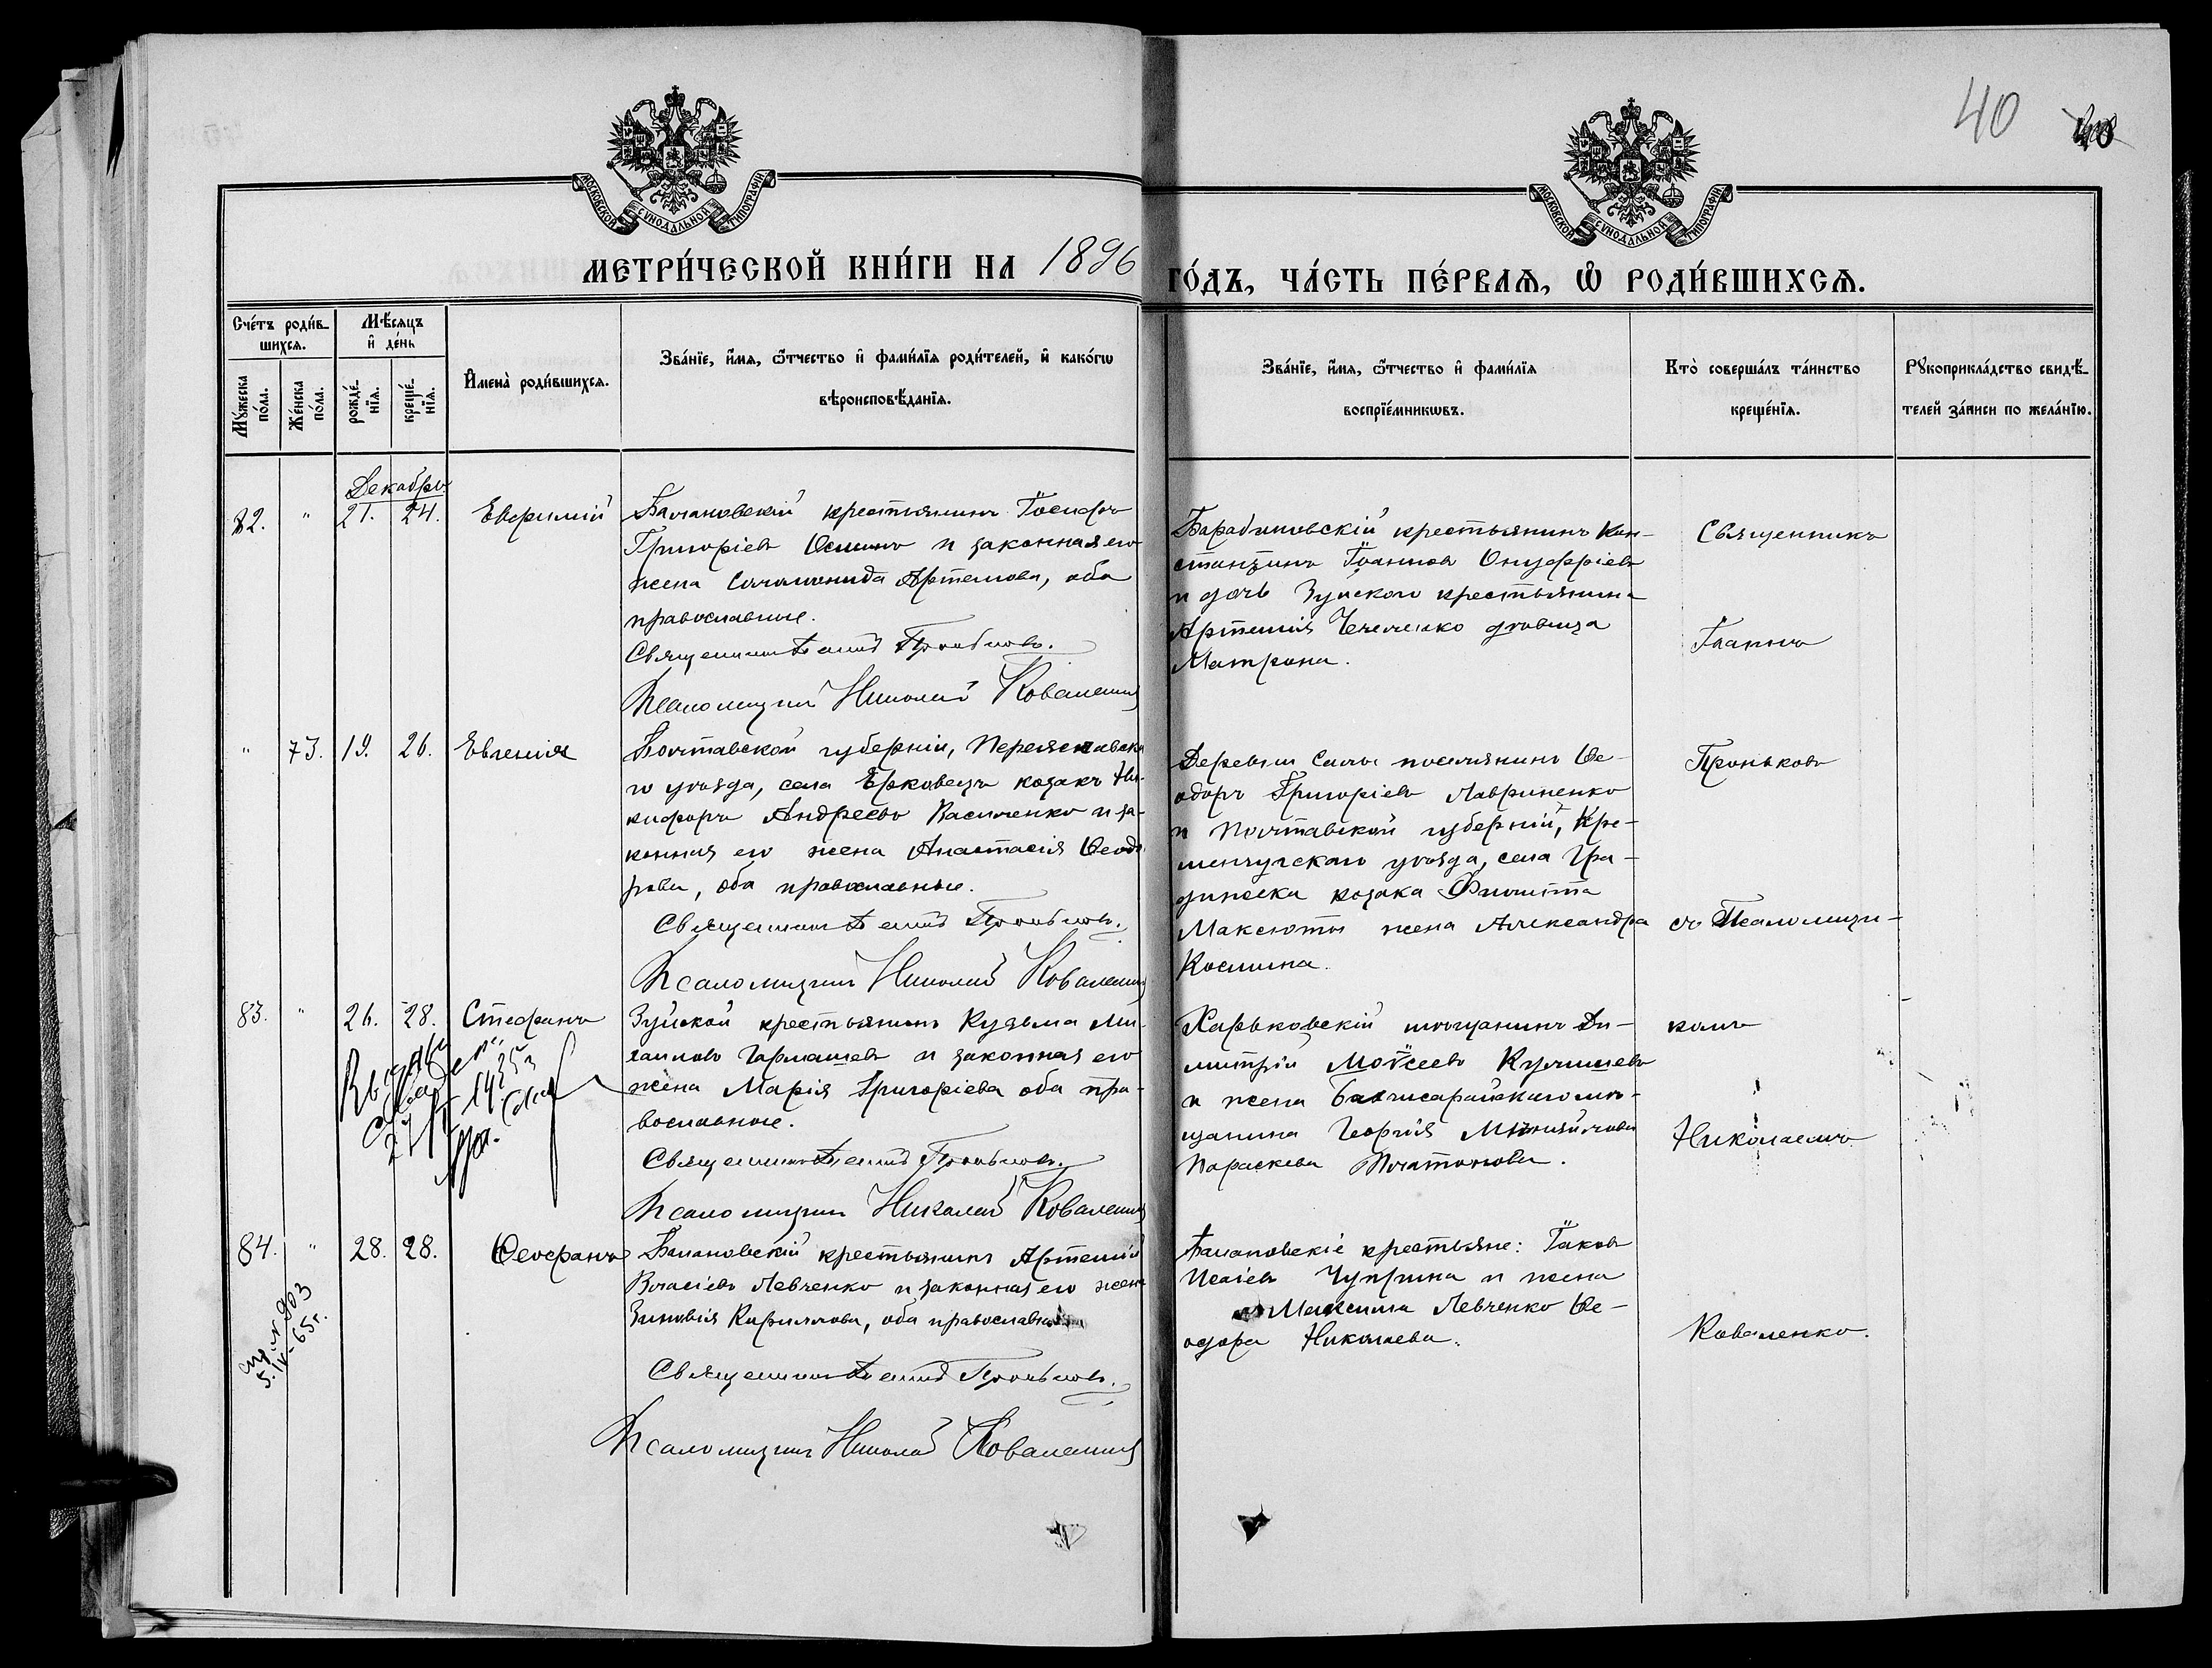 40
МОСКОВСКОЙ СѴНОДАЛЬНОЙ ТИПОГРАФІИ
МОСКОВСКОЙ СѴНОДАЛЬНОЙ ТИПОГРАФІИ
МЕТРИ́ЧЕСКОЙ КНИ́ГИ НА 1896 ГО́ДЪ, ЧА́СТЬ ПЕ́РВАѦ, Ѡ҆ РОДИ́ВШИХСѦ.
Сче́тъ роди́в-
шихсѧ.
Мꙋ́жеска по́ла.
Же́нска по́ла.
Мѣ́сѧцъ
и҆ де́нь
рожде́-
нїѧ.
креще́-
нїѧ.
И҆мена̀ роди́вшихсѧ.
Зва́нїе, и҆́мѧ, ѻ҆́тчество и҆ фами́лїѧ роди́телей, и҆ како́гѡ
вѣроисповѣ́данїѧ.
Зва́нїе, и҆́мѧ, ѻ҆́тчество и҆ фами́лїѧ
воспрїе́мникѡвъ.
Кто̀ соверша́лъ та́инство
креще́нїѧ.
Рꙋкоприкла́дство свидѣ́-
телей за́писи по жела́нїю.
Декабрь
82. " 21. 24. Евфимій
Балановскій крестьянинъ Іосифъ
Григоріевъ и законная его
жена Соломонида Артемова, оба
православные.
Священникъ
Псаломщикъ Николай Коваленко
Барабановскій крестьянинъ Кон-
стантинъ Іоанновъ Онуфріевъ
и дочь Зуйскаго крестьянина
Артемія дѣвица
Матрона.
Священникъ
Іоаннъ
" 73. 19. 26. Евгенія
Полтавской губерніи, Переяславска
го уѣзда, села Ерковецъ козакъ Ни-
кифоръ Андреевъ Василенко и за-
конная его жена Анастасія Ѳеодо
рова, оба православные.
Священникъ
Псаломщикъ Николай Коваленко
Деревни Салы поселянинъ Ѳе-
одоръ Григоріевъ Лавриненко
и Полтавской губерніи, Кре-
менчугскаго уѣзда, села Гра-
дижска козака Филиппа
Максюты жена Александра
Космина.
Проньковъ
съ Псаломщи-
83. " 26. 28. Стефанъ
Зуйской крестьянинъ Кузьма Ми-
хаиловъ Гармашевъ и законная его
жена Марія Григоріева оба пра-
вославные.
Священникъ
Псаломщикъ Николай Коваленко
Харьковскій мѣщанинъ Ди-
митрій Моѵсеевъ
и жена Бахчисарайскаго мѣ-
щанина Георгія
Параскева Платонова.
комъ
Николаемъ
84. " 28. 28. Ѳеофанъ
Балановскій крестьянинъ Артемій
Власіевъ Левченко и законная его жена
Зиновія Кириллова, оба православные
Священникъ
Псаломщикъ Николай Коваленко
Балановскіе крестьяне: Іаковъ
Исаіевъ Чуприна и жена
Максима Левченко Ѳе-
одора Николаева.
Коваленко.
спр. № 903
5.IV-65г.